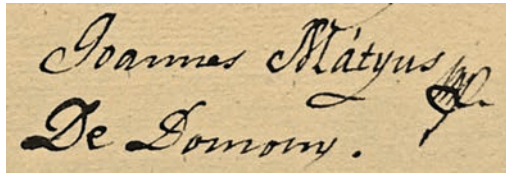 Joannes Mátyus mp.
De Domony.